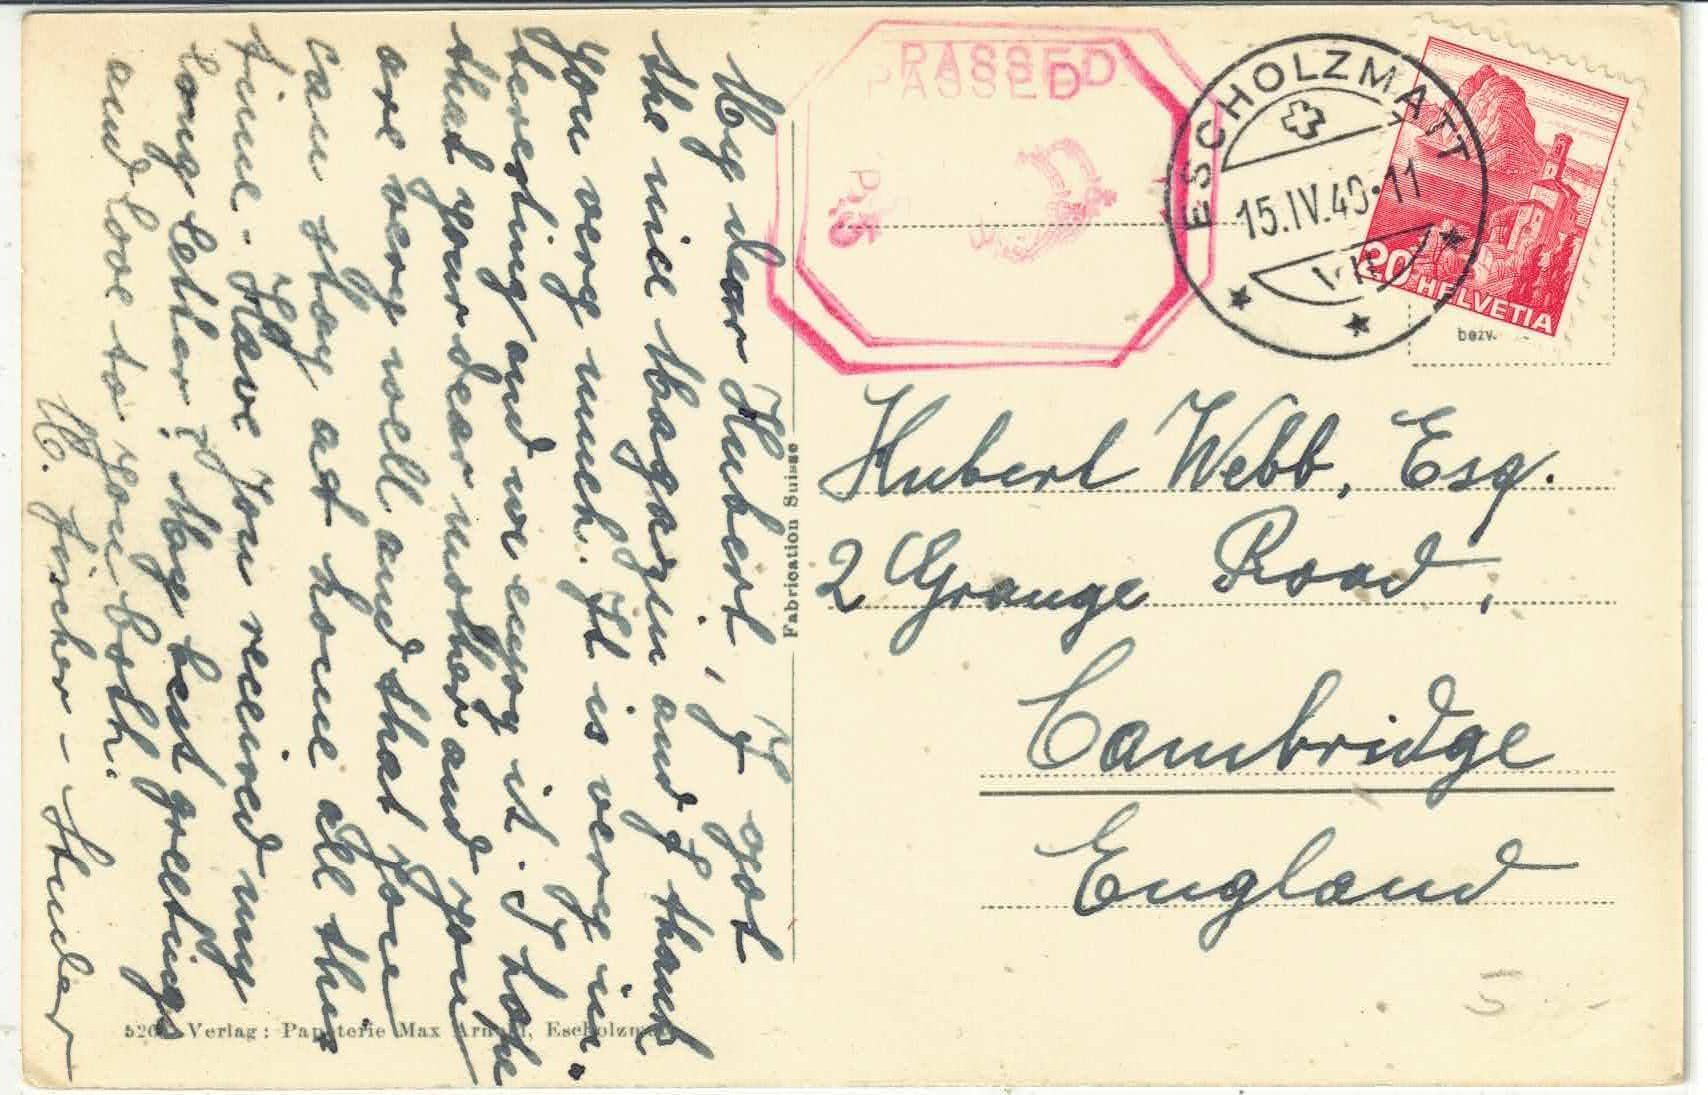 My dear Hubert, I got
the nice Magazin and I thank
you very much. It is very in-
teresting and we enjoy it. I hope
that your dear mother and you
are very well and that you
can stay at home all the
time - Have you received my
long letter? My best greetings
and love to you both.
M. Fischer - Studer
5206 Verlag: Papeterie Max Arnold, Escholzmatt
Fabrication Suisse
PASSED
PASSED
P.
ESCHOLZMATT
15.IV.40.11
20 HELVETIA
bezw.
Hubert Webb, Esq.
2 Grange Road,
Cambridge
England
5